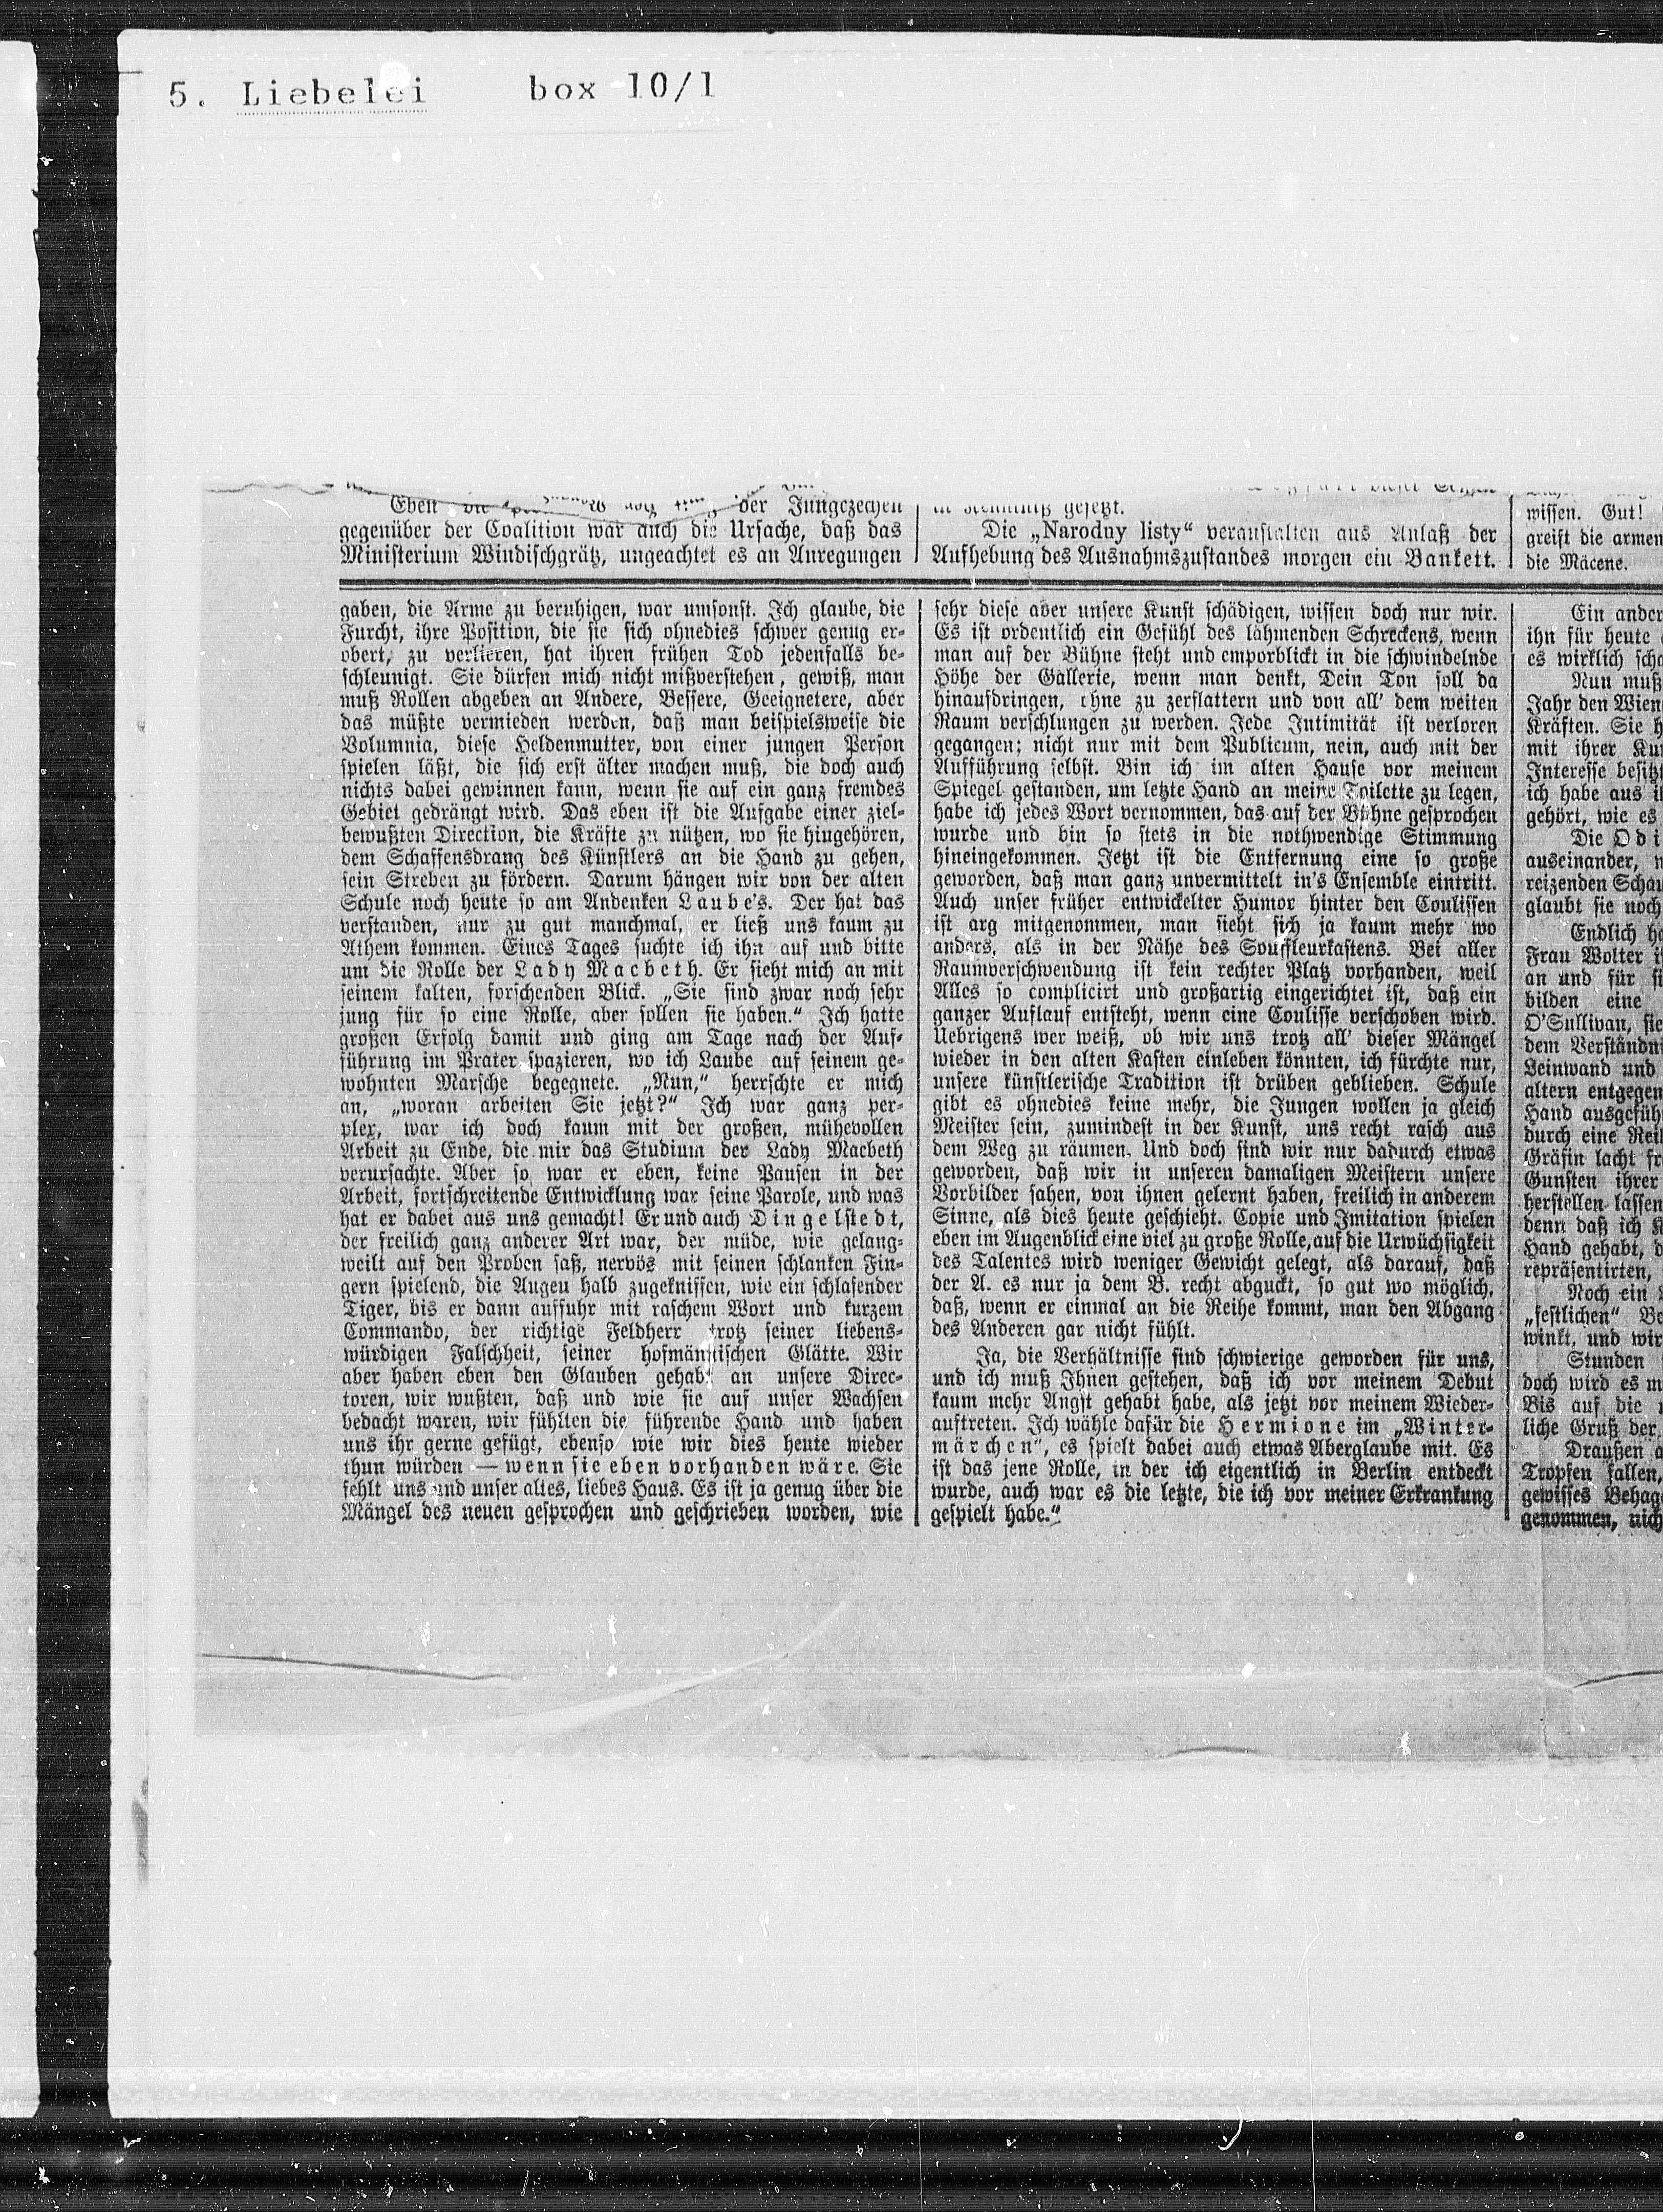 5. Liebelei box 10/1
Eben die der Jungczechen
gegenüber der Coalition war auch die Ursache, daß das
Ministerium Windischgrätz, ungeachtet es an Anregungen
gaben, die Arme zu beruhigen, war umsonst. Ich glaube, die
Furcht, ihre Position, die sie sich ohnedies schwer genug er-
obert, zu verlieren, hat ihren frühen Tod jedenfalls be-
schleunigt. Sie dürfen mich nicht mißverstehen, gewiß, man
muß Rollen abgeben an Andere, Bessere, Geeignetere, aber
das müßte vermieden werden, daß man beispielsweise die
Volumnia, diese Heldenmutter, von einer jungen Person
spielen läßt, die sich erst älter machen muß, die doch auch
nichts dabei gewinnen kann, wenn sie auf ein ganz fremdes
Gebiet gedrängt wird. Das eben ist die Aufgabe einer ziel-
bewußten Direction, die Kräfte zu nützen, wo sie hingehören,
dem Schaffensdrang des Künstlers an die Hand zu gehen,
sein Streben zu fördern. Darum hängen wir von der alten
Schule noch heute so am Andenken Laube's. Der hat das
verstanden, nur zu gut manchmal, er ließ uns kaum zu
Athem kommen. Eines Tages suchte ich ihn auf und bitte
um die Rolle der Lady Macbeth. Er sieht mich an mit
seinem kalten, forschenden Blick. „Sie sind zwar noch sehr
jung für so eine Rolle, aber sollen sie haben.“ Ich hatte
großen Erfolg damit und ging am Tage nach der Auf-
führung im Prater spazieren, wo ich Laube auf seinem ge-
wohnten Marsche begegnete. „Nun,“ herrschte er mich
an, „woran arbeiten Sie jetzt?“ Ich war ganz per-
plex, war ich doch kaum mit der großen, mühevollen
Arbeit zu Ende, die mir das Studium der Lady Macbeth
verursachte. Aber so war er eben, keine Pausen in der
Arbeit, fortschreitende Entwicklung war seine Parole, und was
hat er dabei aus uns gemacht! Er und auch Dingelstedt,
der freilich ganz anderer Art war, der müde, wie gelang-
weilt auf den Proben saß, nervös mit seinen schlanken Fin-
gern spielend, die Augen halb zugekniffen, wie ein schlafender
Tiger, bis er dann auffuhr mit raschem Wort und kurzem
Commando, der richtige Feldherr trotz seiner liebens-
würdigen Falschheit, seiner hofmännischen Glätte. Wir
aber haben eben den Glauben gehabt an unsere Direc-
toren, wir wußten, daß und wie sie auf unser Wachsen
bedacht waren, wir fühlten die führende Hand und haben
uns ihr gerne gefügt, ebenso wie wir dies heute wieder
thun würden — wenn sie eben vorhanden wäre. Sie
fehlt uns und unser altes, liebes Haus. Es ist ja genug über die
Mängel des neuen gesprochen und geschrieben worden, wie
gesetzt.
Die „Narodny listy“ veranstalten aus Anlaß der
Aufhebung des Ausnahmszustandes morgen ein Bankett.
sehr diese aber unsere Kunst schädigen, wissen doch nur wir.
Es ist ordentlich ein Gefühl des lähmenden Schreckens, wenn
man auf der Bühne steht und emporblickt in die schwindelnde
Höhe der Gallerie, wenn man denkt, Dein Ton soll da
hinaufdringen, ohne zu zerflattern und von all' dem weiten
Raum verschlungen zu werden. Jede Intimität ist verloren
gegangen; nicht nur mit dem Publicum, nein, auch mit der
Aufführung selbst. Bin ich im alten Hause vor meinem
Spiegel gestanden, um letzte Hand an meine Toilette zu legen,
habe ich jedes Wort vernommen, das auf der Bühne gesprochen
wurde und bin so stets in die nothwendige Stimmung
hineingekommen. Jetzt ist die Entfernung eine so große
geworden, daß man ganz unvermittelt in's Ensemble eintritt.
Auch unser früher entwickelter Humor hinter den Coulissen
ist arg mitgenommen, man sieht sich ja kaum mehr wo
anders, als in der Nähe des Souffleurkastens. Bei aller
Raumverschwendung ist kein rechter Platz vorhanden, weil
Alles so complicirt und großartig eingerichtet ist, daß ein
ganzer Auflauf entsteht, wenn eine Coulisse verschoben wird.
Uebrigens wer weiß, ob wir uns trotz all' dieser Mängel
wieder in den alten Kasten einleben könnten, ich fürchte nur,
unsere künstlerische Tradition ist drüben geblieben. Schule
gibt es ohnedies keine mehr, die Jungen wollen ja gleich
Meister sein, zumindest in der Kunst, uns recht rasch aus
dem Weg zu räumen. Und doch sind wir nur dadurch etwas
geworden, daß wir in unseren damaligen Meistern unsere
Vorbilder sahen, von ihnen gelernt haben, freilich in anderem
Sinne, als dies heute geschieht. Copie und Imitation spielen
eben im Augenblick eine viel zu große Rolle, auf die Urwüchsigkeit
des Talentes wird weniger Gewicht gelegt, als darauf, daß
der A. es nur ja dem B. recht abguckt, so gut wo möglich,
daß, wenn er einmal an die Reihe kommt, man den Abgang
des Anderen gar nicht fühlt.
Ja, die Verhältnisse sind schwierige geworden für uns,
und ich muß Ihnen gestehen, daß ich vor meinem Debut
kaum mehr Angst gehabt habe, als jetzt vor meinem Wieder-
auftreten. Ich wähle dafür die Hermione im „Winter-
märchen“, es spielt dabei auch etwas Aberglaube mit. Es
ist das jene Rolle, in der ich eigentlich in Berlin entdeckt
wurde, auch war es die letzte, die ich vor meiner Erkrankung
gespielt habe.“
wissen. Gut!
greift die armen
die Mäcene.
Ein ander
ihn für heute
es wirklich scho
Nun muß
Jahr den Wien
Kräften. Sie h
mit ihrer Kun
Interesse besitzt
ich habe aus i
gehört, wie es
Die Odi
auseinander, n
reizenden Schau
glaubt sie noch
Endlich ha
Frau Wolter i
an und für si
bilden eine
O'Sullivan, sie
dem Verständni
Leinwand und
altern entgegen
Hand ausgeführ
durch eine Reih
Gräfin lacht fr
Gunsten ihrer
herstellen lassen
denn daß ich K
Hand gehabt, d
repräsentirten,
Noch ein
„festlichen“ Be
winkt, und wir
Stunden
doch wird es m
Bis auf die
liche Gruß der
Draußen a
Tropfen fallen,
gewisses Behag
genommen, nich